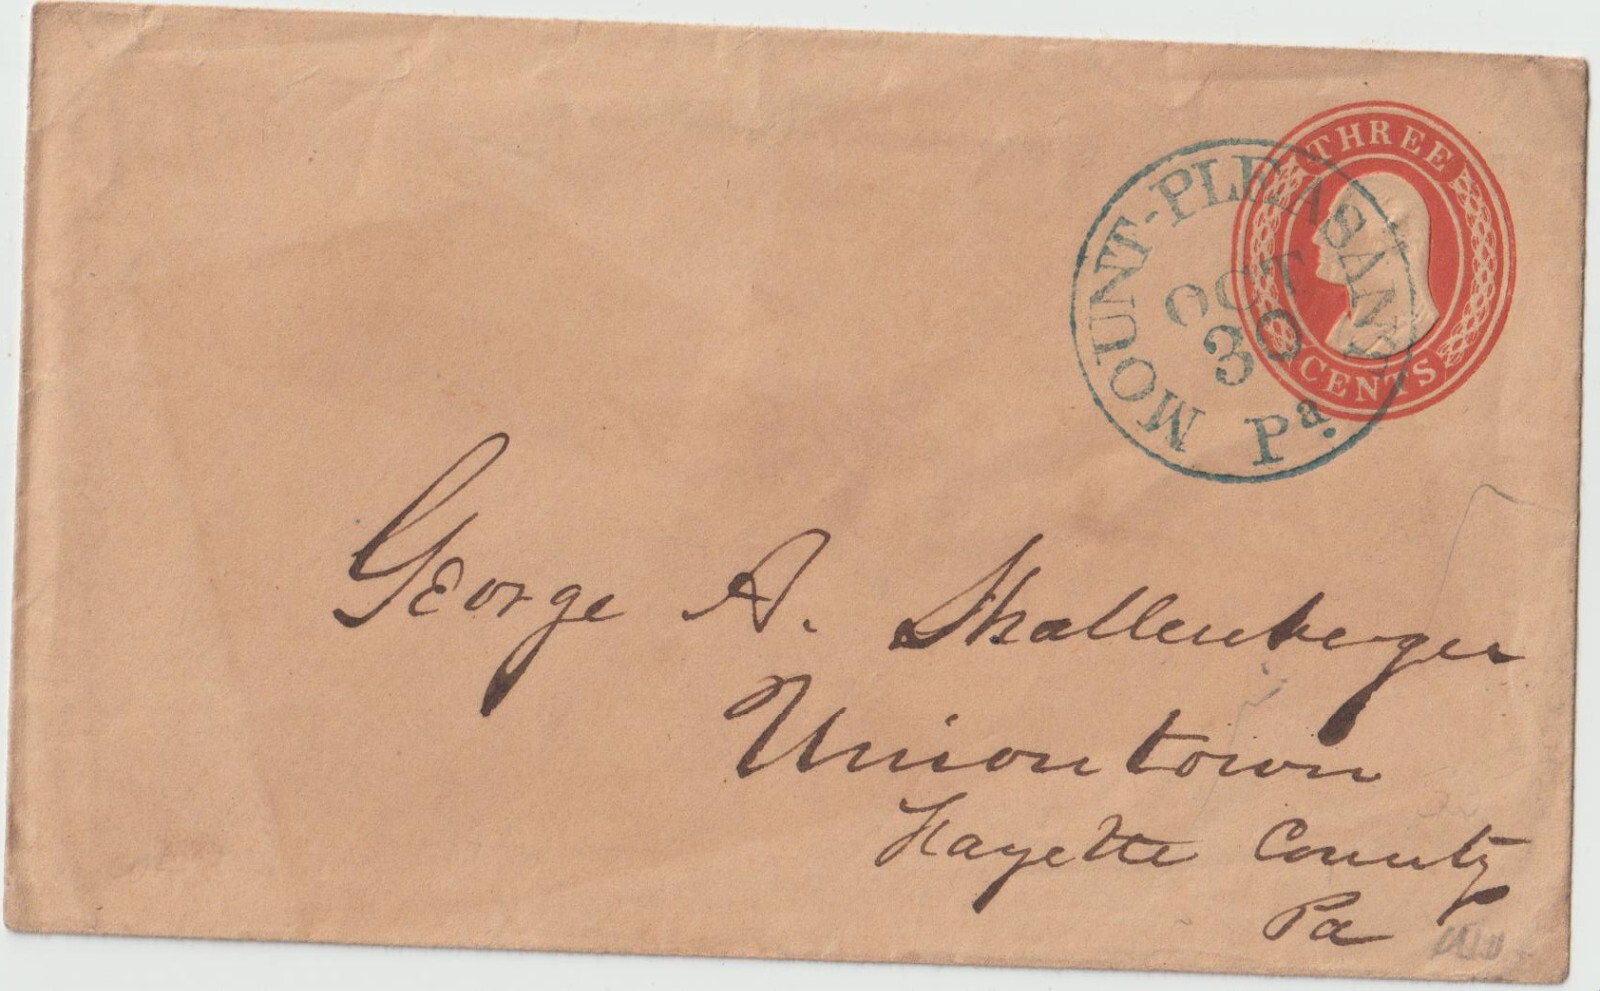 THREE
CENTS
MOUNT-PLEASANT
OCT
30
Pa.
George A. Shallenberger
Uniontown
Fayette County
Pa